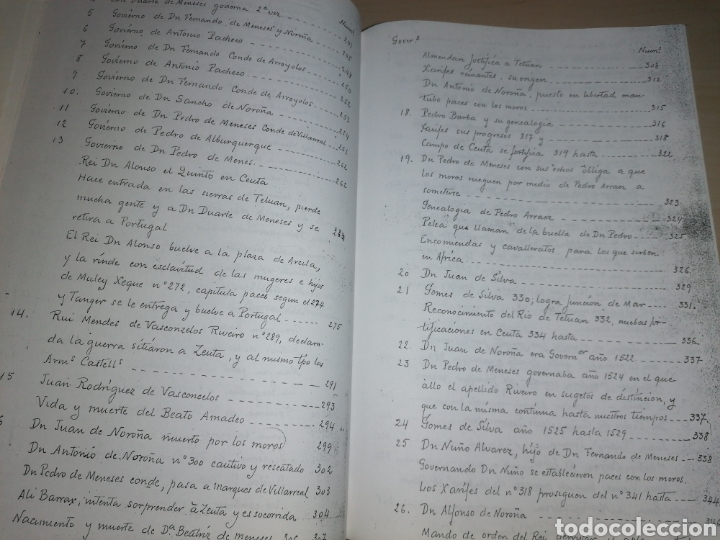 Dn Duarte de Meneses governa 2ª vez
5 Govierno de Dn Fernando de Meneses y Noroña
6 Govierno de Antonio Pacheco
7 Govierno de Dn Fernando Conde de Arroyolos
8 Govierno de Antonio Pacheco
9 Govierno de Dn Fernando Conde de Arroyolos
10 Govierno de Dn Sancho de Noroña
11 Govierno de Dn Pedro de Meneses Conde de Villarreal
12 Govierno de Pedro de Alburquerque
13 Govierno de Dn Pedro de Menes. 262
Rei Dn Alonso el Quinto en Ceuta
Hace entrada en las sierras de Tetuan, pierde
mucha gente y a Dn Duarte de Meneses y se
retira a Portugal
El Rei Dn Alonso buelve a la plaza de Arcila,
y la rinde con esclavitud de las mugeres e hijos
de Muley Xeque nº 272, capitula paces segun el 274
y Tanger se le entrega y buelve a Portugal 275
14. Rui Mendes de Vasconzelos Riveiro nº 289, declara-
da la guerra sitiaron a Zeuta, y al mismo tpo los
Arms Castells 291
15 Juan Rodriguez de Vasconcelos 293
Vida y muerte del Beato Amadeo 294
Dn Juan de Noroña muerto por los moros 299
Dn Antonio de Noroña nº 300 cautivo y rescatado 302
Dn Pedro de Meneses conde, pasa a marques de Villarreal 303
Ali Barrax, intenta sorprender a Zeuta y es socorrida 304
Nacimiento y muerte de Dª Beatriz de Meneses 306
Govr.s Num.s
Almandari fortifica a Tetuan 308
Xarifes reinantes, su origen 312
Dn Antonio de Noroña, puesto en libertad man-
tubo paces con los moros 315
18. Pedro Barba y su genealogia 316
Xarifes sus progresos 317 y 318
Campo de Ceuta se fortifica 319 hasta 322
19. Dn Pedro de Meneses con sus echos obliga a que
los moros nieguen por medio de Pedro Arraez a
someterse 323
Genealogia de Pedro Arraez 324
Pelea que llaman de la buella de Dn Pedro 325
Encomiendas y cavalleratos para los que sirben
en Africa 326
20 Dn Juan de Silva 329
21 Gomes de Silva 330; logra funcion de Mar 331
Reconocimento del Rio de Tetuan 332, muchas for-
tificaciones en Ceuta 334 hasta 336
22 Dn Juan de Noroña era Governor año 1522 337
23 Dn Pedro de Meneses governaba año 1524 en el que
allo el apellido Rivero en sugetos de distincion, y
que con la misma continua hasta nuestros tiempos 337
24 Gomes de Silva año 1525 hasta 1529 338
25 Dn Nuño Alvarez, hijo de Dn Fernando de Meneses
Governando Dn Nuño se establecieron paces con los moros.
Los Xarifes del nº 318 prosiguen del nº 341 hasta 344
26. Dn Alfonso de Noroña
Mando de orden del Rei
todocoleccion